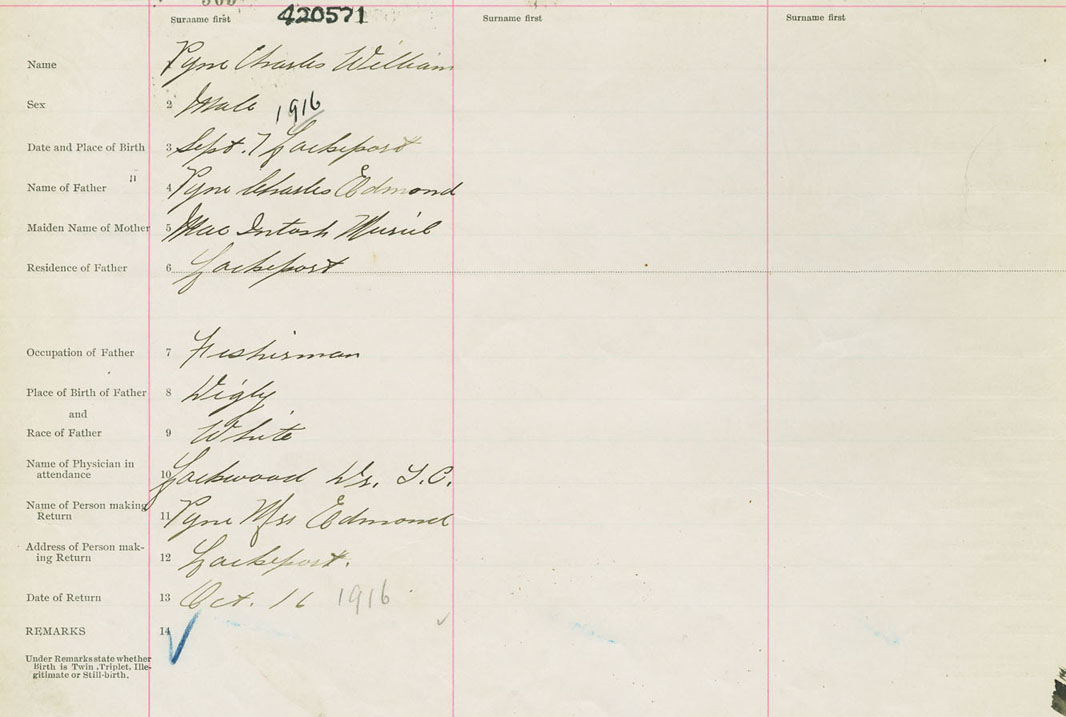 Surname first 420571 Surname first Surname first
Name 1 Pyne Charles William
Sex 2 Male 1916
Date and Place of Birth 3 Sept. 7 Lockeport
Name of Father 4 Pyne Charles Edmond
Maiden Name of Mother 5 Mac Intosh Muriel
Residence of Father 6 Lockeport
Occupation of Father 7 Fisherman
Place of Birth of Father 8 Digby
and
Race of Father 9 White
Name of Physician in
attendance 10 Lockwood Dr. T.C.
Name of Person making
Return 11 Pyne Mrs Edmond
Address of Person mak-
ing Return 12 Lockeport.
Date of Return 13 Oct. 16 1916
REMARKS 14
Under Remarks state whether
Birth is Twin, Triplet, Ille-
gitimate or Still-birth.